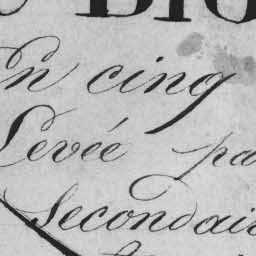 En cinq
Levée pa
Secondair